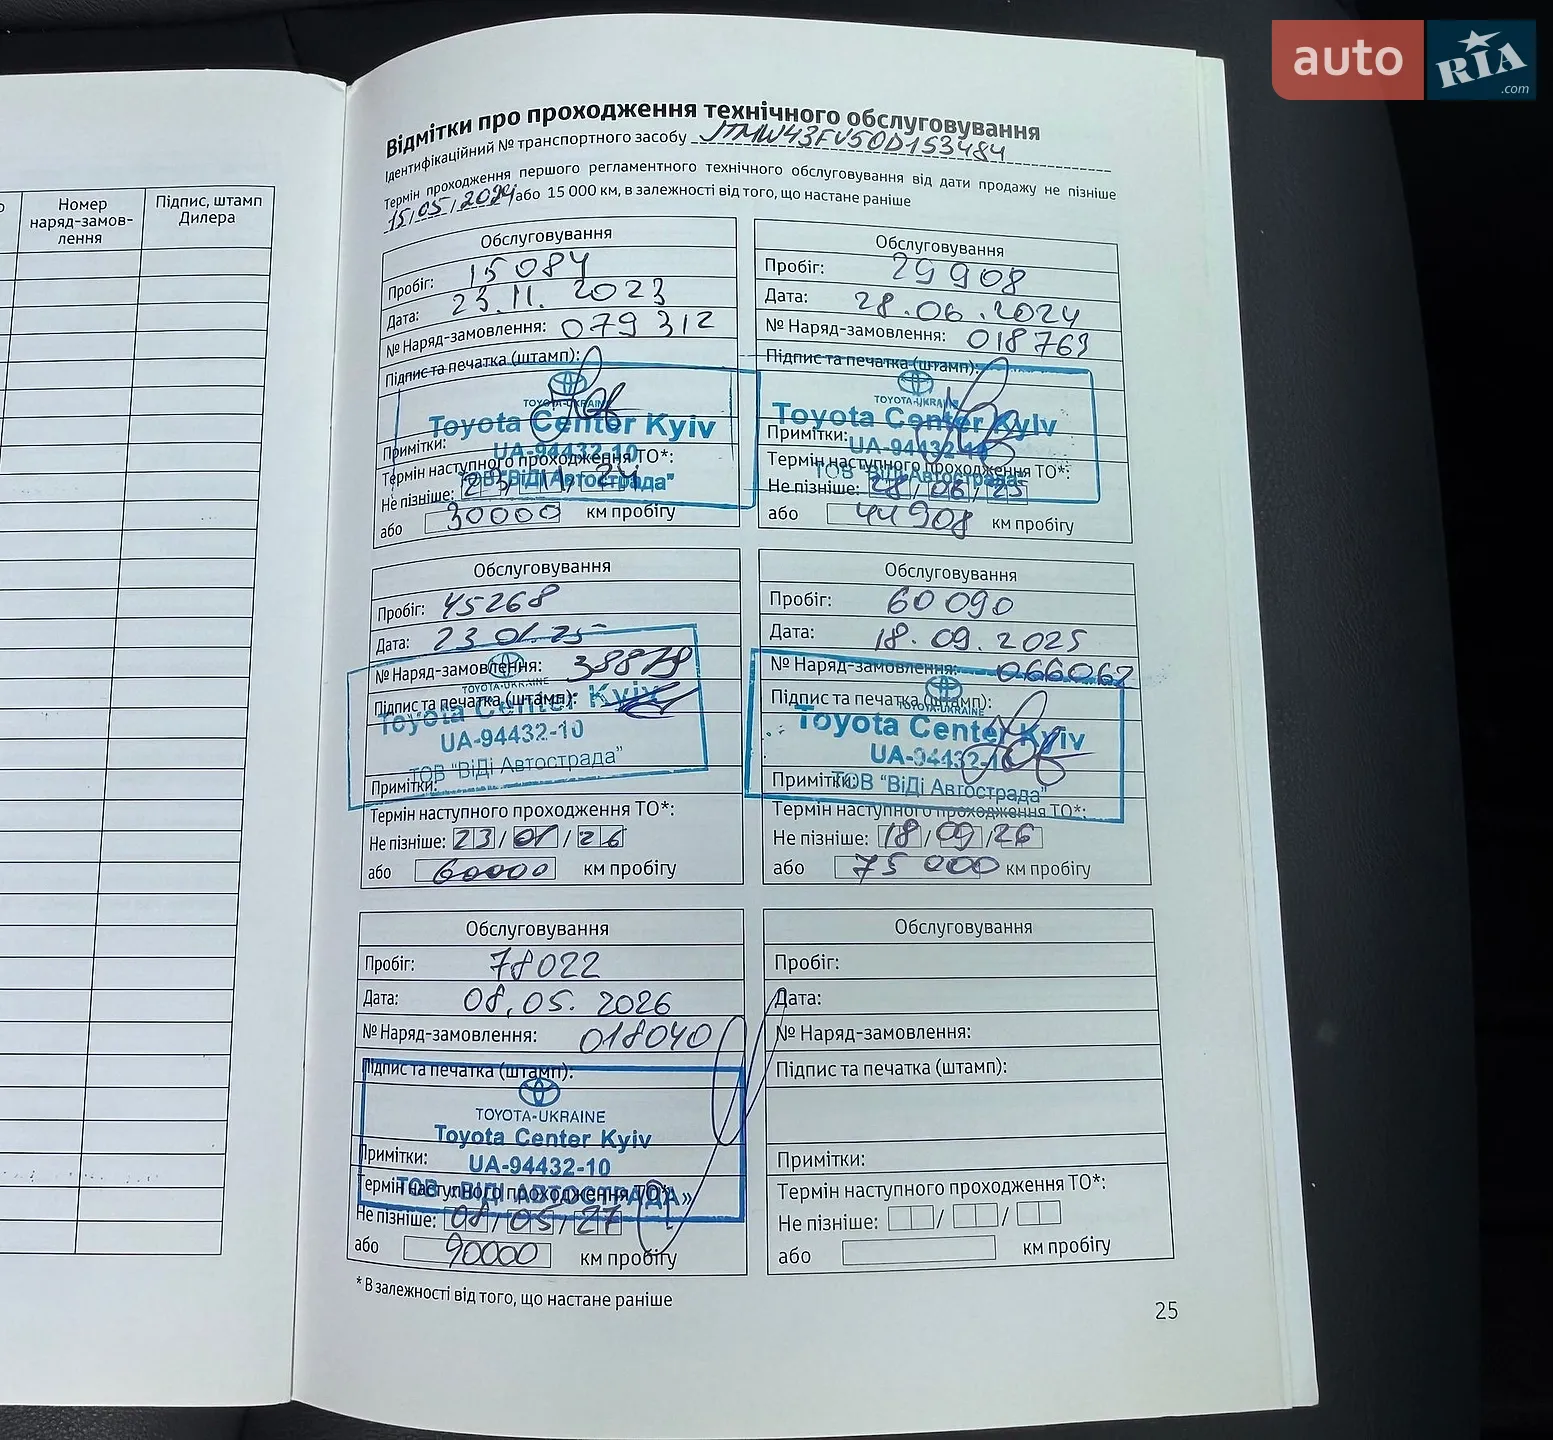 auto RIA .com
Номер наряд-замов-лення
Підпис, штамп Дилера
Відмітки про проходження технічного обслуговування
Ідентифікаційний № транспортного засобу JTMW43FV50D153484
Термін проходження першого регламентного технічного обслуговування від дати продажу не пізніше
15/05/2024 або 15 000 км, в залежності від того, що настане раніше
Обслуговування
Пробіг: 15084
Дата: 23.11.2023
№ Наряд-замовлення: 079312
Підпис та печатка (штамп):
TOYOTA-UKRAINE
Toyota Center Kyiv
UA-94432-10
ТОВ "ВіДі Автострада"
Примітки:
Термін наступного проходження ТО*:
Не пізніше: 23/11/24
або 30000 км пробігу
Обслуговування
Пробіг: 29908
Дата: 28.06.2024
№ Наряд-замовлення: 018763
Підпис та печатка (штамп):
TOYOTA-UKRAINE
Toyota Center Kyiv
UA-94432-10
ТОВ "ВіДі Автострада"
Примітки:
Термін наступного проходження ТО*:
Не пізніше: 28/06/25
або 44908 км пробігу
Обслуговування
Пробіг: 45268
Дата: 23 01.25
№ Наряд-замовлення:
Підпис та печатка (штамп):
TOYOTA-UKRAINE
Toyota Center Kyiv
UA-94432-10
ТОВ "ВіДі Автострада"
Примітки:
Термін наступного проходження ТО*:
Не пізніше: 23/01/26
або 60000 км пробігу
Обслуговування
Пробіг: 60 090
Дата: 18.09.2025
№ Наряд-замовлення: 066067
Підпис та печатка (штамп):
TOYOTA-UKRAINE
Toyota Center Kyiv
UA-94432-10
ТОВ "ВіДі Автострада"
Примітки:
Термін наступного проходження ТО*:
Не пізніше: 18/09/26
або 75 000 км пробігу
Обслуговування
Пробіг: 78022
Дата: 08.05.2026
№ Наряд-замовлення: 018040
Підпис та печатка (штамп):
TOYOTA-UKRAINE
Toyota Center Kyiv
Примітки:
UA-94432-10
ТОВ «ВІДІ АВТОСТРАДА»
Термін наступного проходження ТО*:
Не пізніше: 08/05/27
або 90000 км пробігу
Обслуговування
Пробіг:
Дата:
№ Наряд-замовлення:
Підпис та печатка (штамп):
Примітки:
Термін наступного проходження ТО*:
Не пізніше: / /
або км пробігу
* В залежності від того, що настане раніше
25